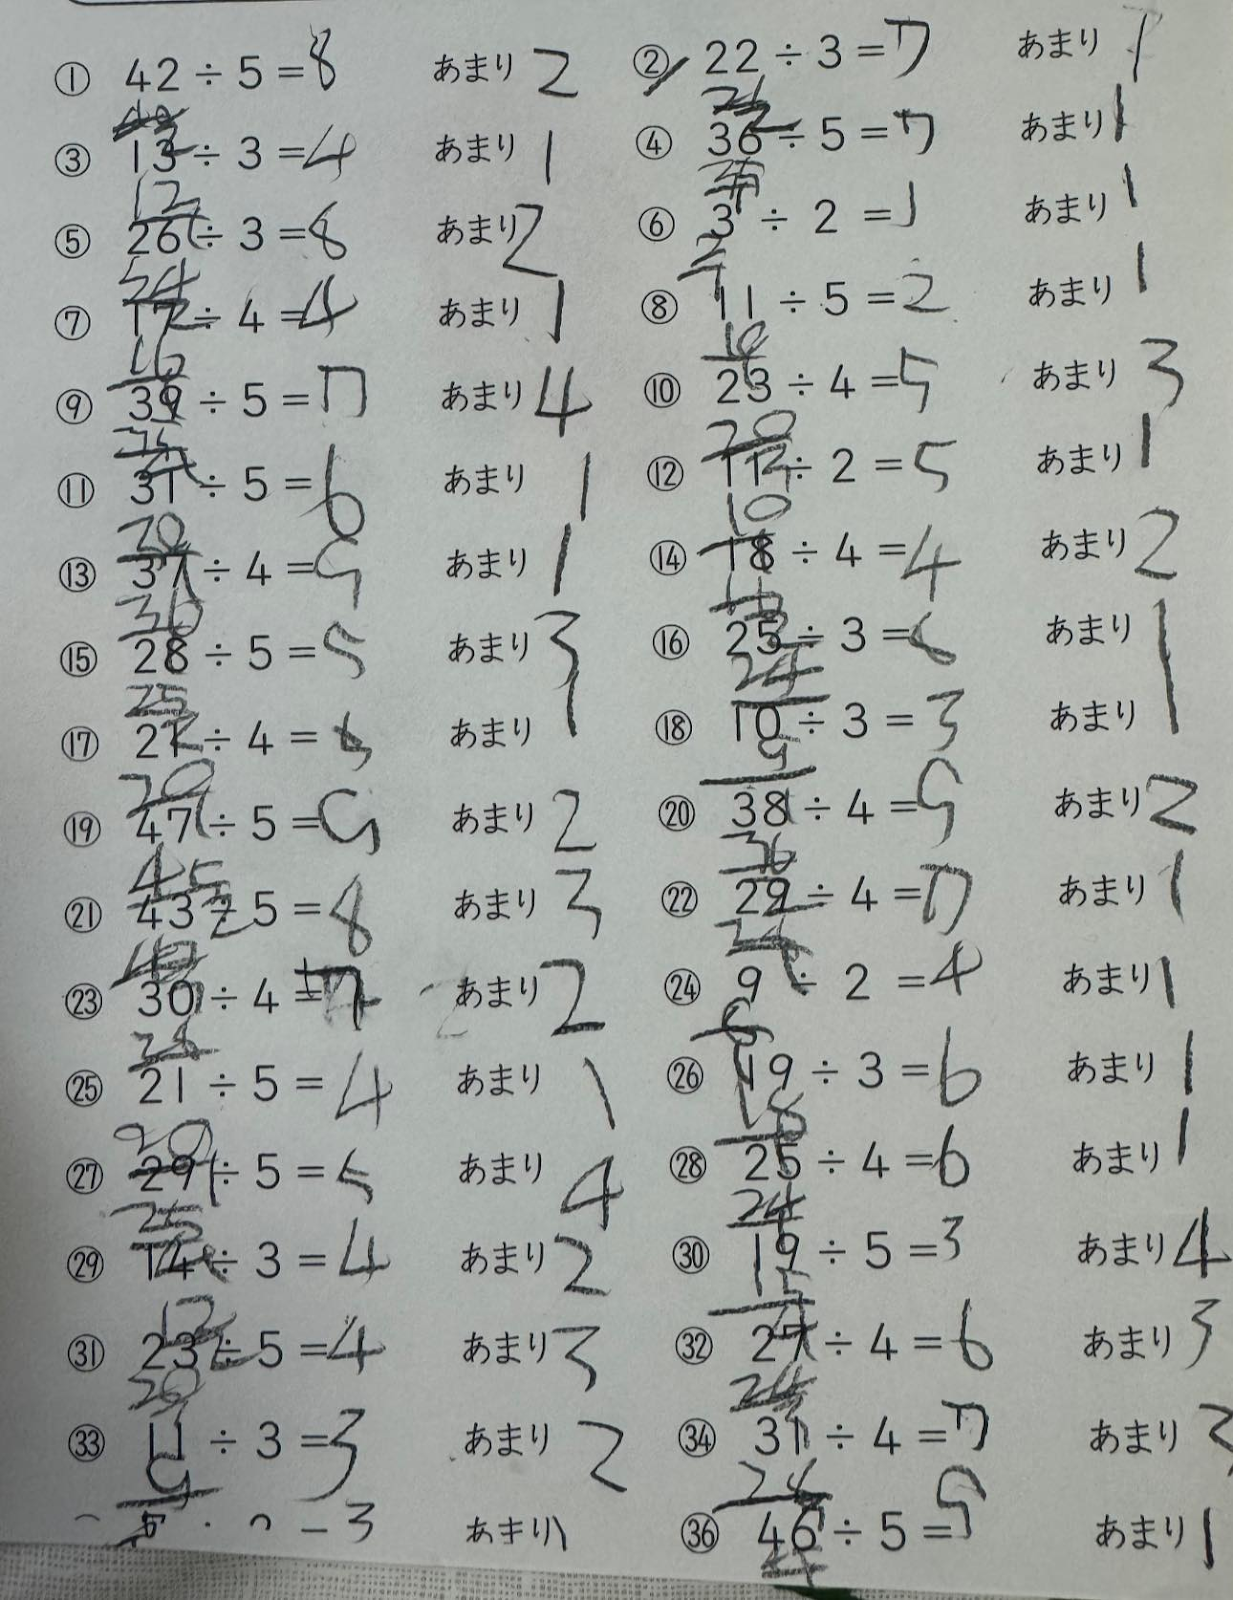 ① 42 ÷ 5 = 8 あまり 2 ② 22 ÷ 3 = 7 あまり 1
③ 13 ÷ 3 = 4 あまり 1 ④ 36 ÷ 5 = 7 あまり 1
12
⑤ 26 ÷ 3 = 8 あまり 2 ⑥ 3 ÷ 2 = 1 あまり 1
24
⑦ 17 ÷ 4 = 4 あまり 1 ⑧ 11 ÷ 5 = 2 あまり 1
16 10
⑨ 39 ÷ 5 = 7 あまり 4 ⑩ 23 ÷ 4 = 5 あまり 3
20
⑪ 31 ÷ 5 = 6 あまり 1 ⑫ 11 ÷ 2 = 5 あまり 1
10
⑬ 37 ÷ 4 = 9 あまり 1 ⑭ 18 ÷ 4 = 4 あまり 2
36
⑮ 28 ÷ 5 = 5 あまり 3 ⑯ 25 ÷ 3 = あまり 1
25 24
⑰ 21 ÷ 4 = 5 あまり 1 ⑱ 10 ÷ 3 = 3 あまり 1
20 9
⑲ 47 ÷ 5 = 9 あまり 2 ⑳ 38 ÷ 4 = 9 あまり 2
45 36
㉑ 43 ÷ 5 = 8 あまり 3 ㉒ 29 ÷ 4 = 7 あまり 1
㉓ 30 ÷ 4 = 7 あまり 2 ㉔ 9 ÷ 2 = 4 あまり 1
㉕ 21 ÷ 5 = 4 あまり 1 ㉖ 19 ÷ 3 = 6 あまり 1
20 18
㉗ 29 ÷ 5 = 5 あまり 4 ㉘ 25 ÷ 4 = 6 あまり 1
25 24
㉙ 14 ÷ 3 = 4 あまり 2 ㉚ 19 ÷ 5 = 3 あまり 4
12 15
㉛ 23 ÷ 5 = 4 あまり 3 ㉜ 27 ÷ 4 = 6 あまり 3
20 24
㉝ 11 ÷ 3 = 3 あまり 2 ㉞ 31 ÷ 4 = 7 あまり 3
9 28
3 あまり 1 ㊱ 46 ÷ 5 = 9 あまり 1